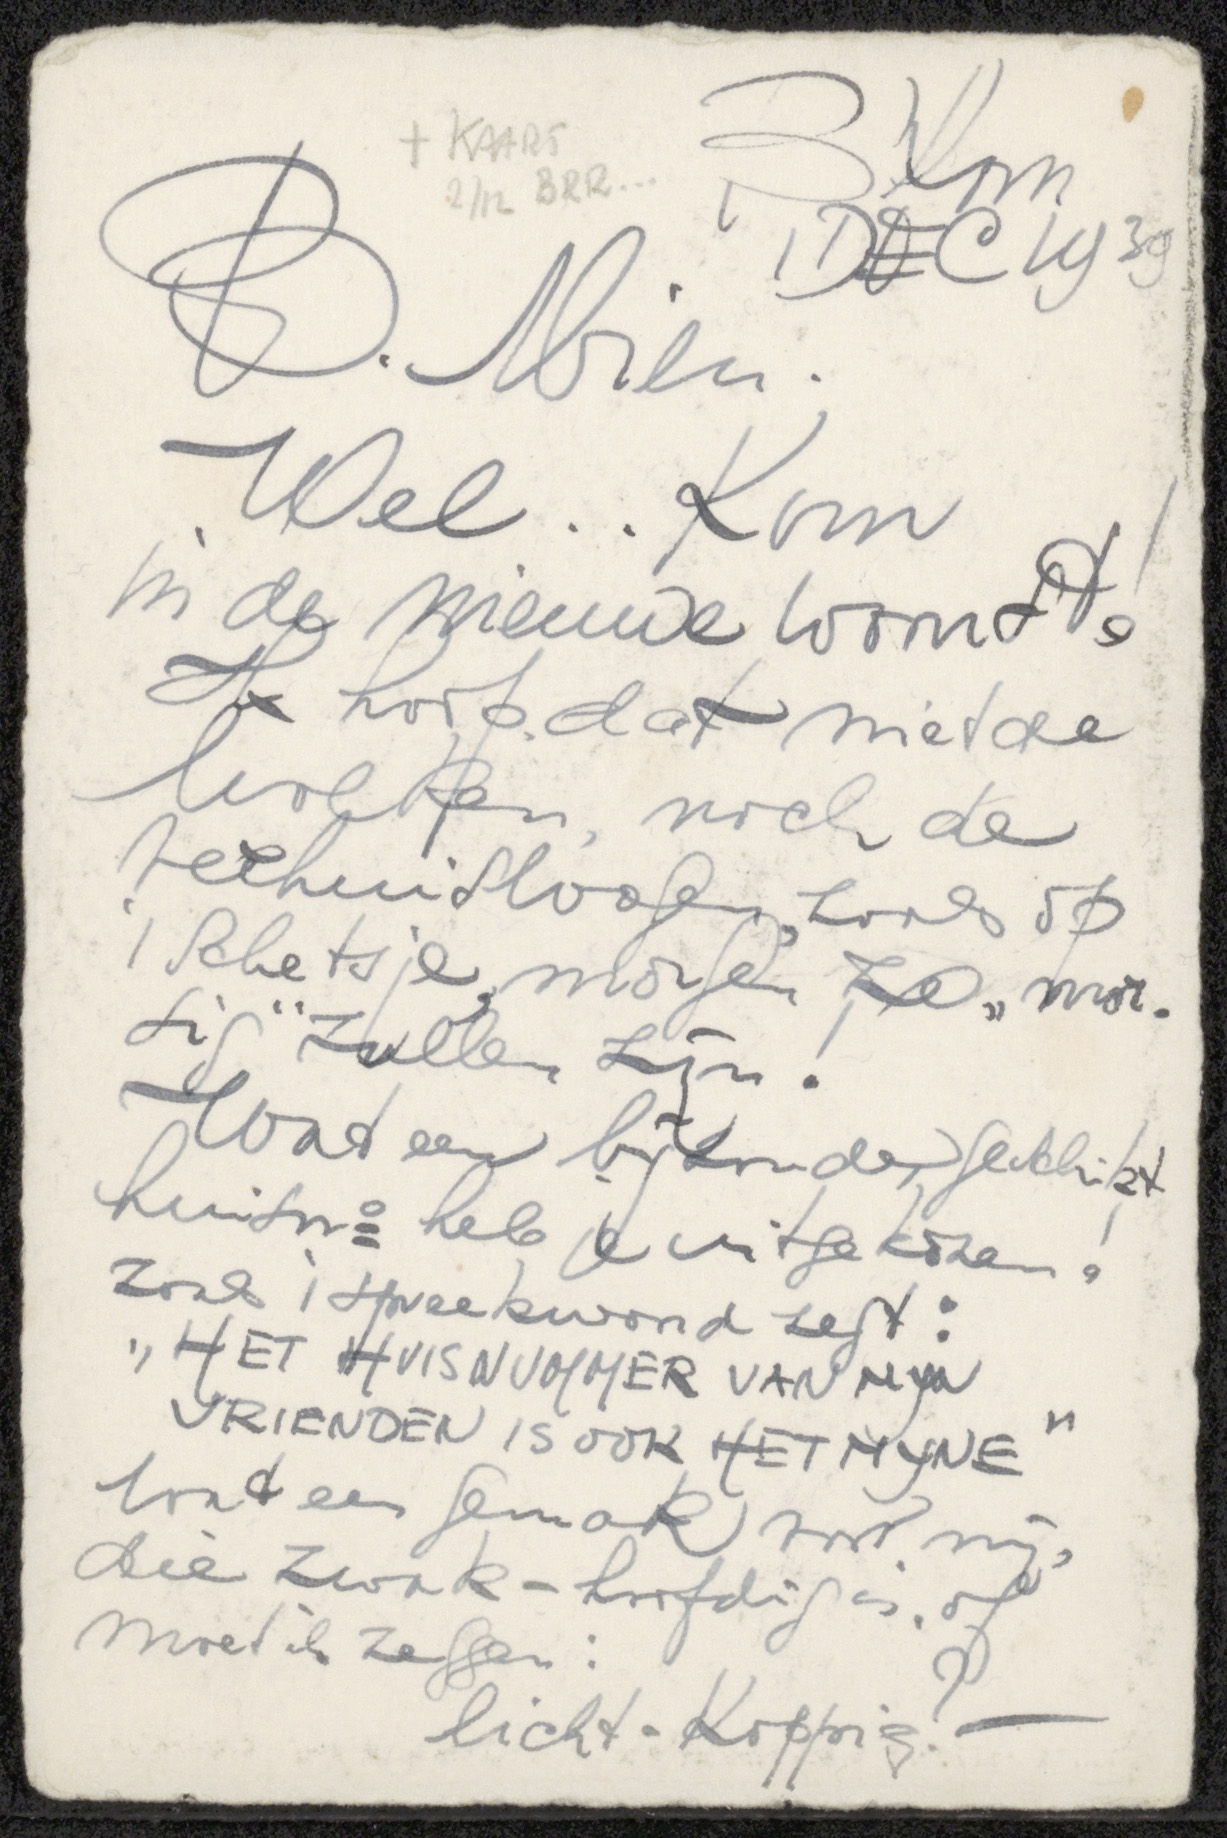 + KAART
2/12 BRR...
Blom
1 DEC 1939
B. Mien.
Wel... Kom
in de nieuwe woonst!
Ik hoop dat niet de
wolken, noch de
zoals op
't schetsje, morgen zo „mor-
sig" zullen zijn!
Wat een bijzonder geschikt
huisnº heb je uitgekozen!
zoals 't spreekwoord zegt:
„HET HUISNUMMER VAN MYN
VRIENDEN IS OOK HET MYNE"
Wat een gemak voor mij,
die zwak-hoofdig is, of
moet ik zeggen:
licht-koppig? —